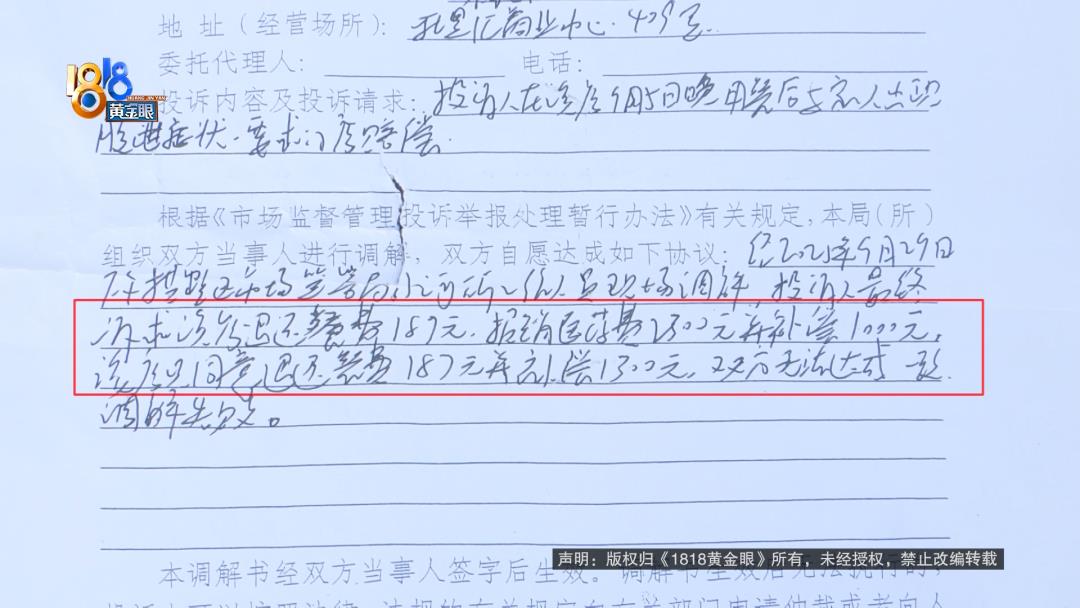 地 址（经营场所）：托里亿商业中心·409号
委托代理人： 电话：
1818黄金眼
投诉内容及投诉请求：投诉人在该店9月5日晚用餐后与家人出现
腹泄症状，要求门店赔偿
根据《市场监督管理投诉举报处理暂行办法》有关规定，本局（所）
组织双方当事人进行调解，双方自愿达成如下协议：经2025年9月29日
市场监管局 所工作人员现场调解，投诉人最终
诉求该店退还餐费187元，报销医药费2300元并补偿1000元，
该店只同意退还餐费187元并补偿1300元，双方无法达成一致
调解失败。
声明：版权归《1818黄金眼》所有，未经授权，禁止改编转载
本调解书经双方当事人签字后生效。调解书生效后无法执行的，